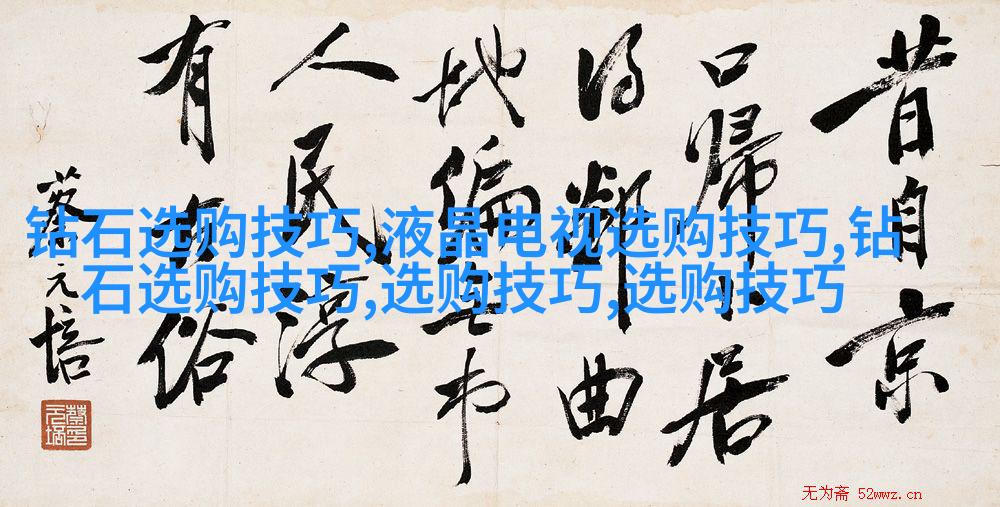 昔自京
口歸卜居
得鄰曲
地偏無市
人民淳
有古俗
蔡元培
钻石选购技巧,液晶电视选购技巧,钻
石选购技巧,选购技巧,选购技巧
无为斋 52wwz.cn